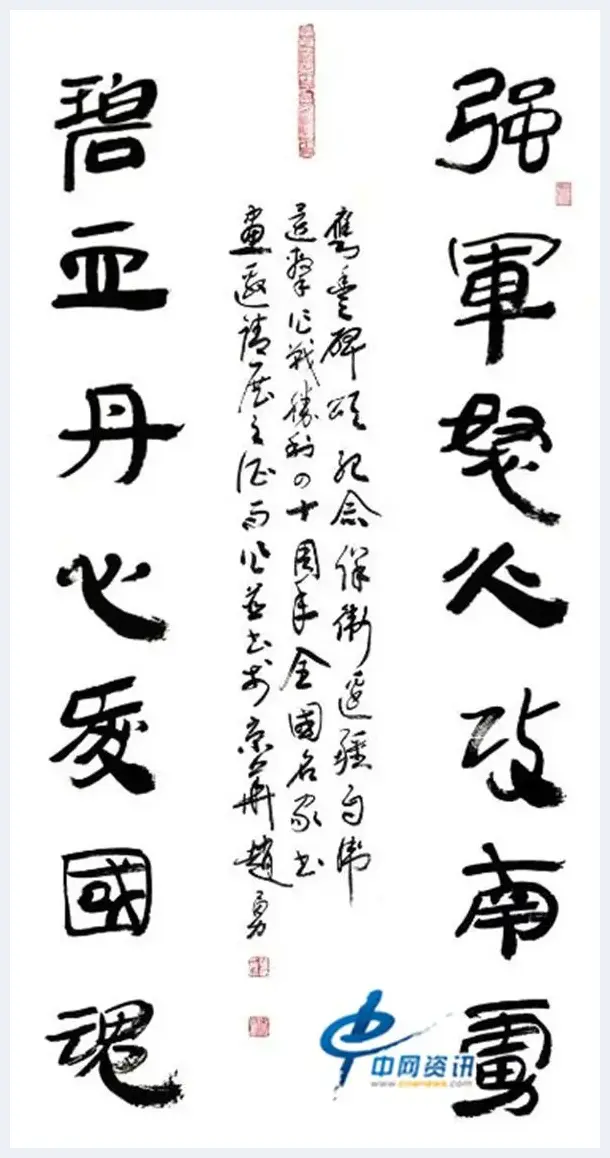 强軍怒火攻南
應豐碑頌紀念保衛邊疆自衛
還擊作戰勝利四十周年全國名家書
畫邀請展之征而作並書於京華趙勇
碧血丹心爱國魂
中网资讯
www.cnwnews.com